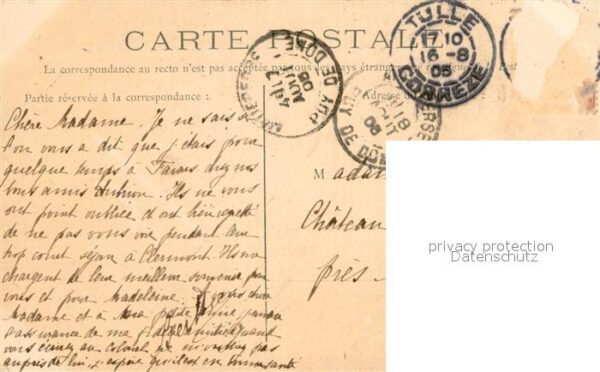 CARTE POSTALE
La correspondance au recto n'est pas acceptée par tous les pays étrangers
Partie réservée à la correspondance :
Adresse
TULLE
17 10
16-8
05
CORREZE
PUY DE DOME
AOUT
05
PUY DE DOME
AOUT
05
Chère Madame. Je ne sais si
l'on vous a dit que j'étais pour
quelque temps à chez nos
bons amis Ils ne vous
ont point oubliée et ont bien regretté
de ne pas vous voir pendant leur
trop court séjour à Clermont. Ils me
chargent de leur meilleur souvenir pour
vous et pour Madeleine. chère
Madame et à ma petite amie
l'assurance de ma Quand
vous écrirez au ne m'oubliez pas
auprès de lui, j'espère qu'il est en bonne santé
Madame
Château
près
privacy protection
Datenschutz